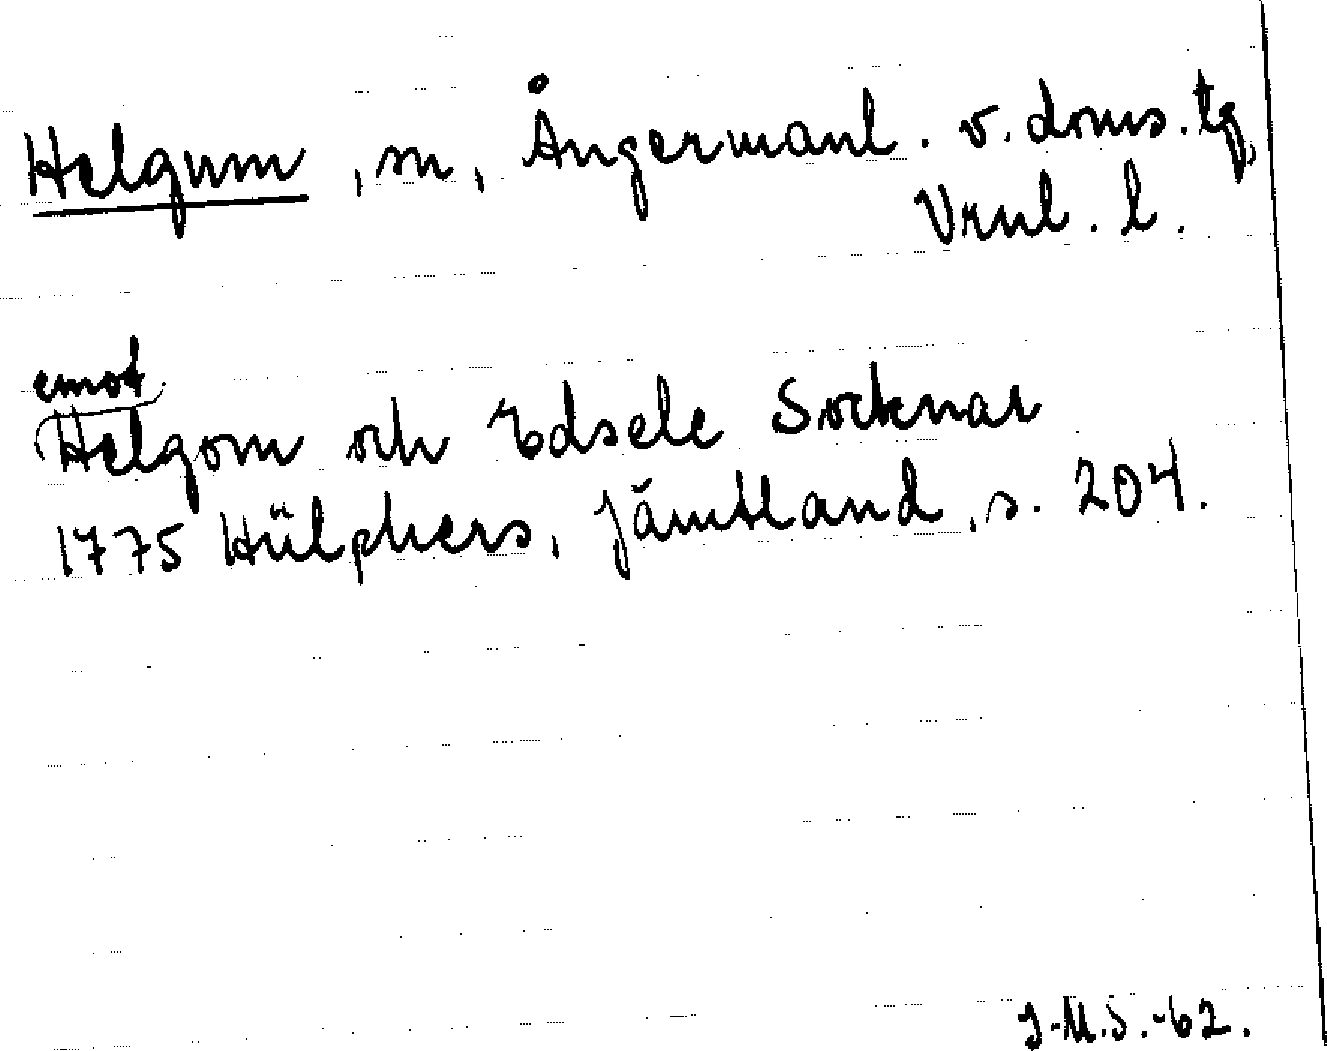 Helgum, sn, Ångermanl. v. doms. tg,
Vrnl. l.
emot
Helgom och Edsele Socknar
1775 Hülphers, Jämtland, s. 204.
J.M.S.-62.